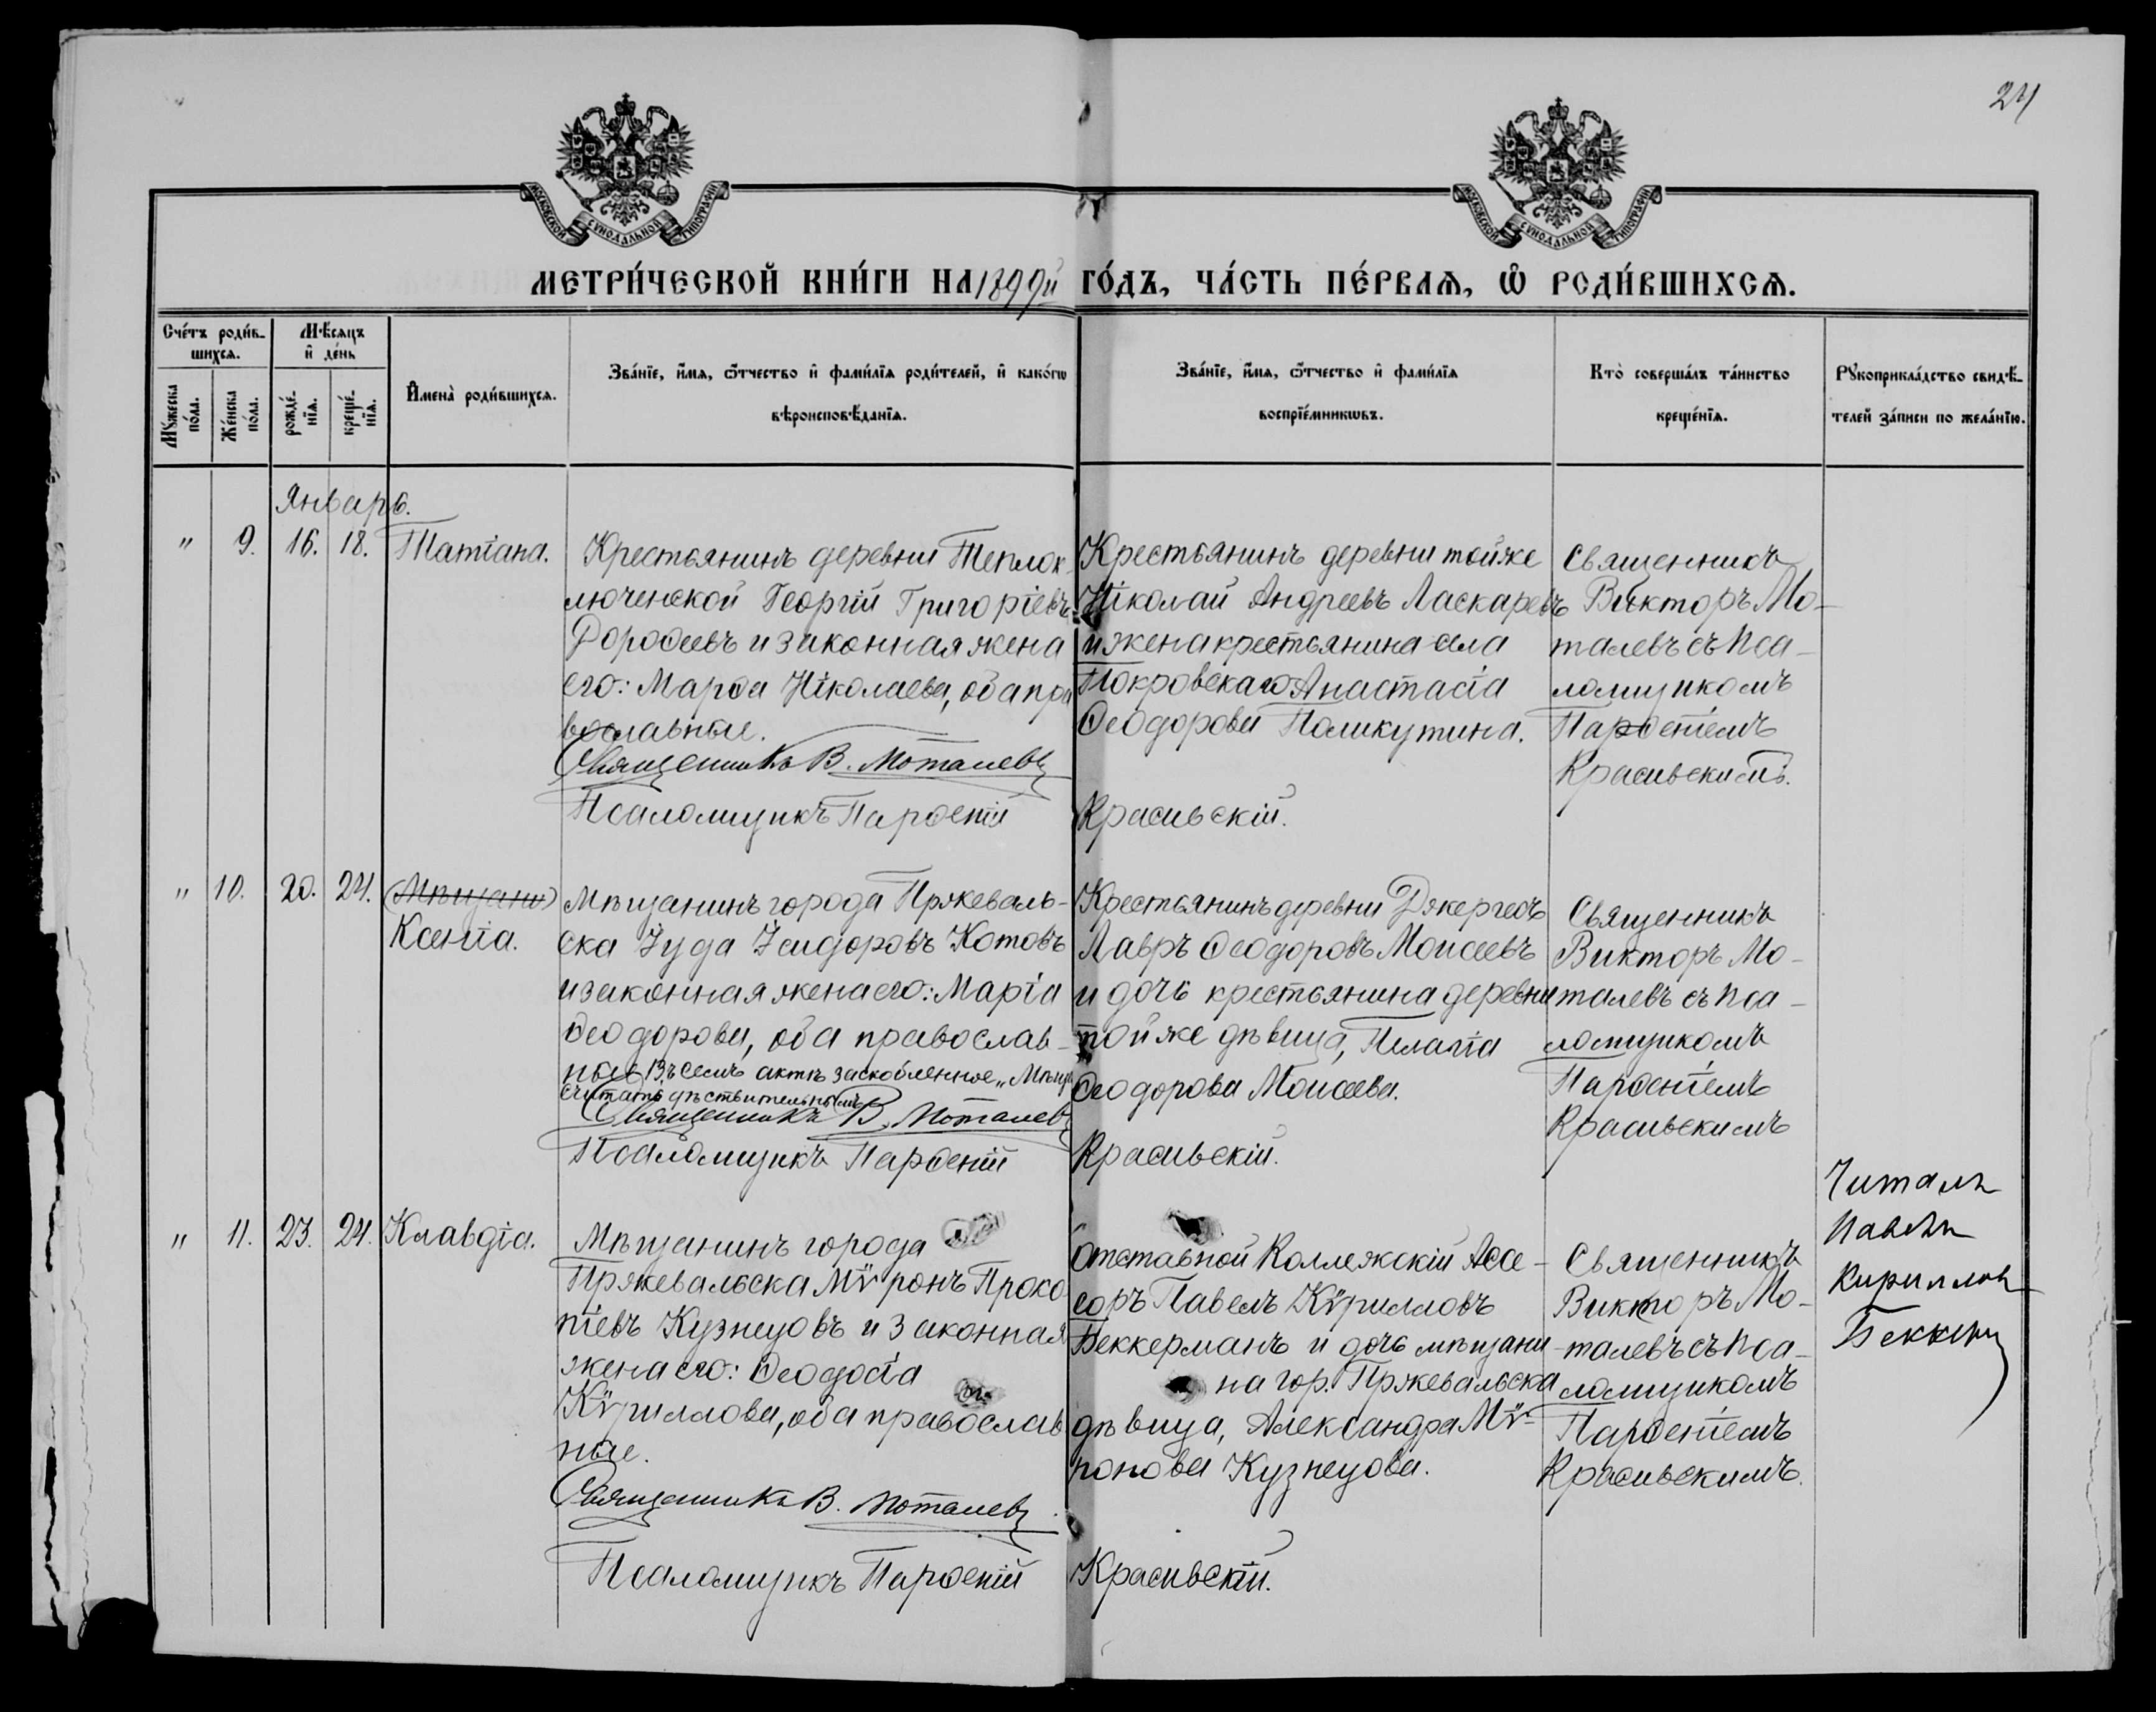 24
МОСКОВСКОЙ СѴНОДАЛЬНОЙ ТИПОГРАФИИ
МОСКОВСКОЙ СѴНОДАЛЬНОЙ ТИПОГРАФИИ
МЕТРИ́ЧЕСКОЙ КНИ́ГИ НА 1899й ГО́ДЪ, ЧА́СТЬ ПЕ́РВАѦ, Ѡ҆ РОДИ́ВШИХСѦ.
Сче́тъ роди́в-
шихсѧ.
Мꙋ́жеска
по́ла.
Же́нска
по́ла.
Мѣ́сѧцъ
и҆ де́нь
рожде́-
нїѧ.
креще́-
нїѧ.
И҆мена̀ роди́вшихсѧ.
Зва́нїе, и҆́мѧ, ѻ҆́тчество и҆ фами́лїѧ роди́телей, и҆ како́гѡ
вѣроисповѣ́данїѧ.
Зва́нїе, и҆́мѧ, ѻ҆́тчество и҆ фами́лїѧ
воспрїе́мникѡвъ.
Кто̀ соверша́лъ та́инство
креще́нїѧ.
Рꙋкоприкла́дство свидѣ́-
телей за́писи по жела́нїю.
Январь.
" 9. 16. 18. Татіана.
Крестьянинъ деревни Теплок-
люченской Георгій Григоріевъ
Дороѳеевъ и законная жена
его: Марѳа Ніколаева, оба пра
вославные.
Священникъ В. Моталевъ
Псаломщикъ Парѳеній
Крестьянинъ деревни тойже
Ніколай Андреевъ Ласкаревъ
и жена крестьянина села
Покровскаго Анастасія
Ѳеодорова Поликутина.
Красивскій.
Священникъ
Викторъ Мо-
талевъ съ пса-
ломщикомъ
Парѳеніемъ
Красивскимъ.
" 10. 20. 24. (Мѣщани)
Ксенія.
Мѣщанинъ города Пржеваль-
ска Іуда Ісидоровъ Котовъ
и законная жена его: Марія
Ѳеодорова, оба православ-
ные. Въ семъ актѣ заскобленное „Мѣща
считать дѣствительнымъ
Священникъ В. Моталевъ
Псаломщикъ Парѳеній
Крестьянинъ деревни Джергесъ
Лавръ Ѳеодоровъ Моисеевъ
и дочь крестьянина деревни
той же дѣвица, Пелагія
Ѳеодорова Моисеева.
Красивскій.
Священникъ
Викторъ Мо-
талевъ съ пса-
ломщикомъ
Парѳеніемъ
Красивскимъ
" 11. 23. 24. Клавдіа.
Мѣщанинъ города
Пржевальска Мѵронъ Проко
піевъ Кузнецовъ и законная
жена его: Ѳеодосія
Кѵриллова, оба православ
ные.
Священникъ В. Моталевъ
Псаломщикъ Парѳеній
Отставной Коллежскій Ассе-
соръ Павелъ Кѵрилловъ
Беккерманъ и дочь мѣщани-
на гор. Пржевальска
дѣвица, Александра Мѵ-
ронова Кузнецова.
Красивскій.
Священникъ
Викторъ Мо-
талевъ съ пса-
ломщикомъ
Парѳеніемъ
Красивскимъ.
Читалъ
Павелъ
Кириловъ